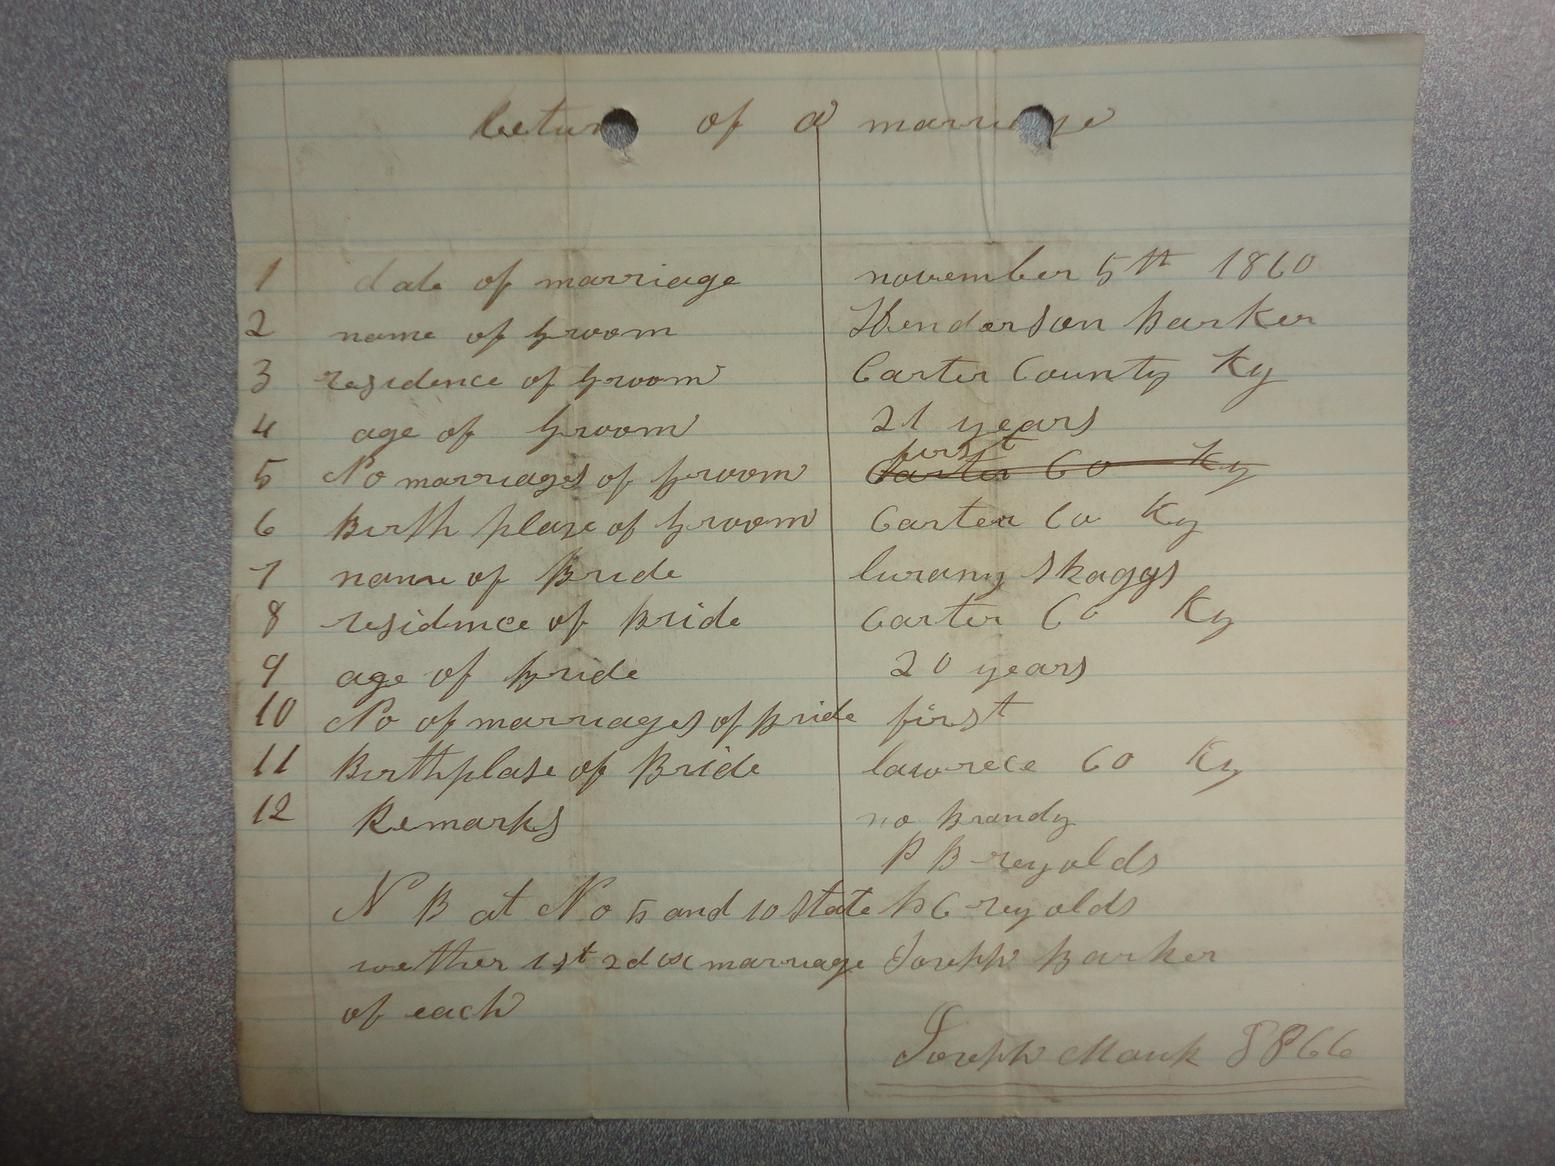 Return of a marriage
1 date of marriage november 5th 1860
2 name of groom Henderson Barker
3 residence of groom Carter County Ky
4 age of groom 21 years
first
5 No marriages of groom Carter Co Ky
6 Birth plase of groom Carter Co Ky
7 name of Bride lurany Skaggs
8 residence of Bride Carter Co Ky
9 age of bride 20 years
10 No of marriages of bride first
11 Birthplase of Bride lawrece Co Ky
12 Remarks no brandy
P B reyolds
N B at No 5 and 10 state reyolds
wether 1st 2d &c marriage Joseph Barker
of each
Joseph Mauk